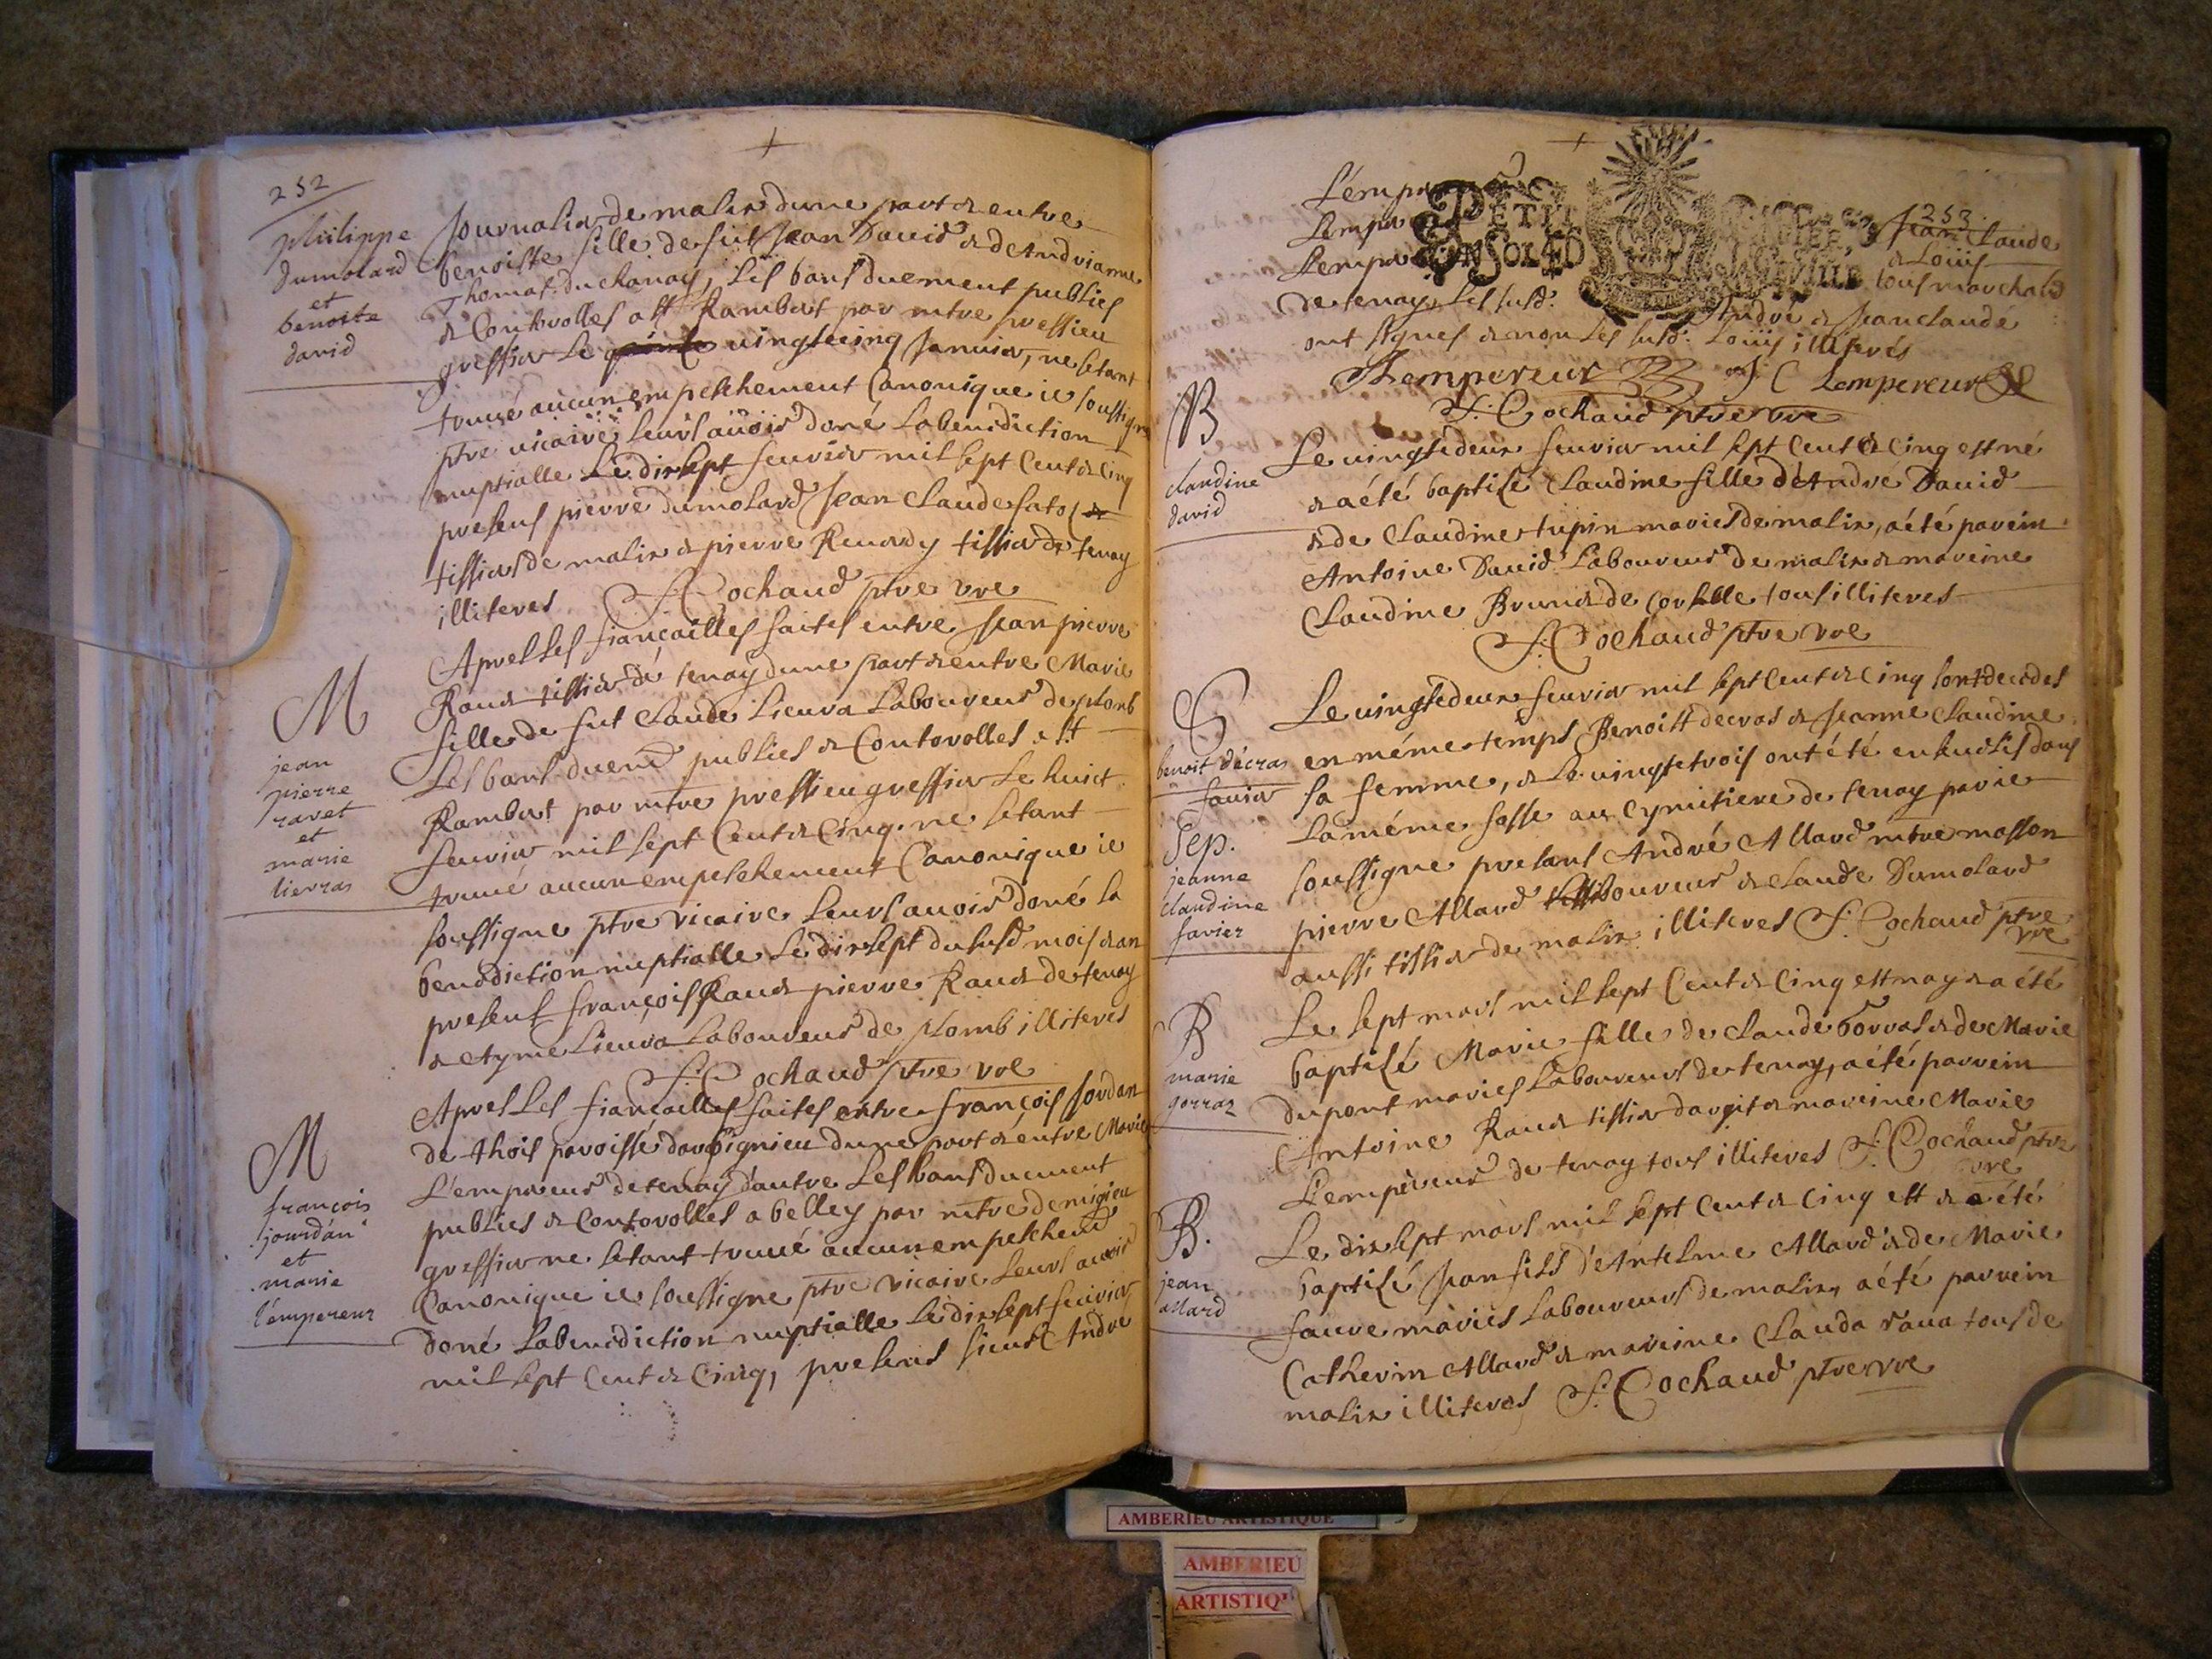 252
philippe
dumolard
et
benoite
david
Journalier de malix dune part & entre
benoiste fille de fut Jean David & de Andrianne
Thomas duchanay, Les bans duement publies
& Controlles a st Rambert par mtre pressieu
greffier le vingtecinq Janvier, ne setant
trouvé aucun empeschement Canonique ie soussigne
ptre vicaire leurs avoir doné La benediction
nuptialle Le dixsept feuvrier mil sept Cent & Cinq
presens pierre dumolard Jean Claude
tissier de malix & pierre Renardy tissier de tenay
illiteres F: Cochaud ptre vre
M
jean
pierre
ravet
et
marie
lierras
Apres Les fiançailles faites entre Jean pierre
Rauet tissier de tenay dune part & entre Marie
fille de fut Claude Lieura Laboureur de plomb
Les bans duemt publies & Controlles a st
Rambert par mtre pressieu greffier Le huict
feuvrier mil sept Cent & Cinq. ne setant
trouvé aucun empeschement Canonique ie
soussigne ptre vicaire Leurs avoir doné la
benediction nuptialle Le dixsept du susd mois & an
presens françois Rauet pierre Rauet de tenay
& Ayme Lieura Laboureur de plomb illiteres
F: Cochaud ptre vre
M
françois
jourdan
et
marie
l'empereur
Apres Les fiançailles faites entre françois Jordan
de thois paroisse darbignieu dune part & entre Marie
L'empereur de tenay d'autre Les bans duement
publies & Controlles a belley par mtre demigieu
greffier ne setant trouvé aucun empeschemt
Canonique ie soussigne ptre vicaire Leurs avoir
doné La benediction nuptialle Le dixsept feuvrier
mil sept Cent & Cinq, presens sieurs Andre
253
PETIT
Jean Claude
& Louis
tous marchands
de tenay, Les susd: Andre & Jean claude
ont signes & non Les susd: Louis illiterés
Lempereur J C Lempereur
F: Cochaud ptre vre
B
claudine
david
Le vingtedeux feuvrier mil sept Cent & Cinq est né
& a été baptisé Claudine fille d'André David
& de Claudine tupin maries de malix, a été parein
Antoine David Laboureur de malix & mareine
Claudine Brunet de Corlelle tous illiteres
F: Cochaud ptre vre
S
benoit décras
favier
Sep.
jeanne
claudine
favier
Le vingtedeux feuvrier mil sept Cent & Cinq sont decedes
en méme temps Benoist decras & Jeanne Claudine
sa femme, & Le vingtetrois ont été ensevelis dans
La méme fosse au Cymitiere de tenay par ie
soussigne presans André Allard mtre masson
pierre Allard Laboureur & Claude Dumolard
aussi tissier de malix illiteres F: Cochaud ptre
vre
B
marie
gorraz
Le sept mars mil sept Cent & Cinq est nay & a été
baptisé Marie fille de Claude Gorras & de Marie
dupont maries Laboureurs de tenay, a été parrein
Antoine Rauet tissier dargit & mareine Marie
L'empereur de tenay tous illiteres F: Cochaud ptre
vre
B.
jean
allard
Le dixsept mars mil sept Cent & Cinq est & a été
baptisé Jean fils d'Antelme Allard & de Marie
faure maries Laboureurs de malix, a été parrein
Catherin Allard & mareine Clauda raua tous de
malix illiteres F: Cochaud ptre vre
AMBERIEU ARTISTIQUE
AMBERIEU
ARTISTIQU